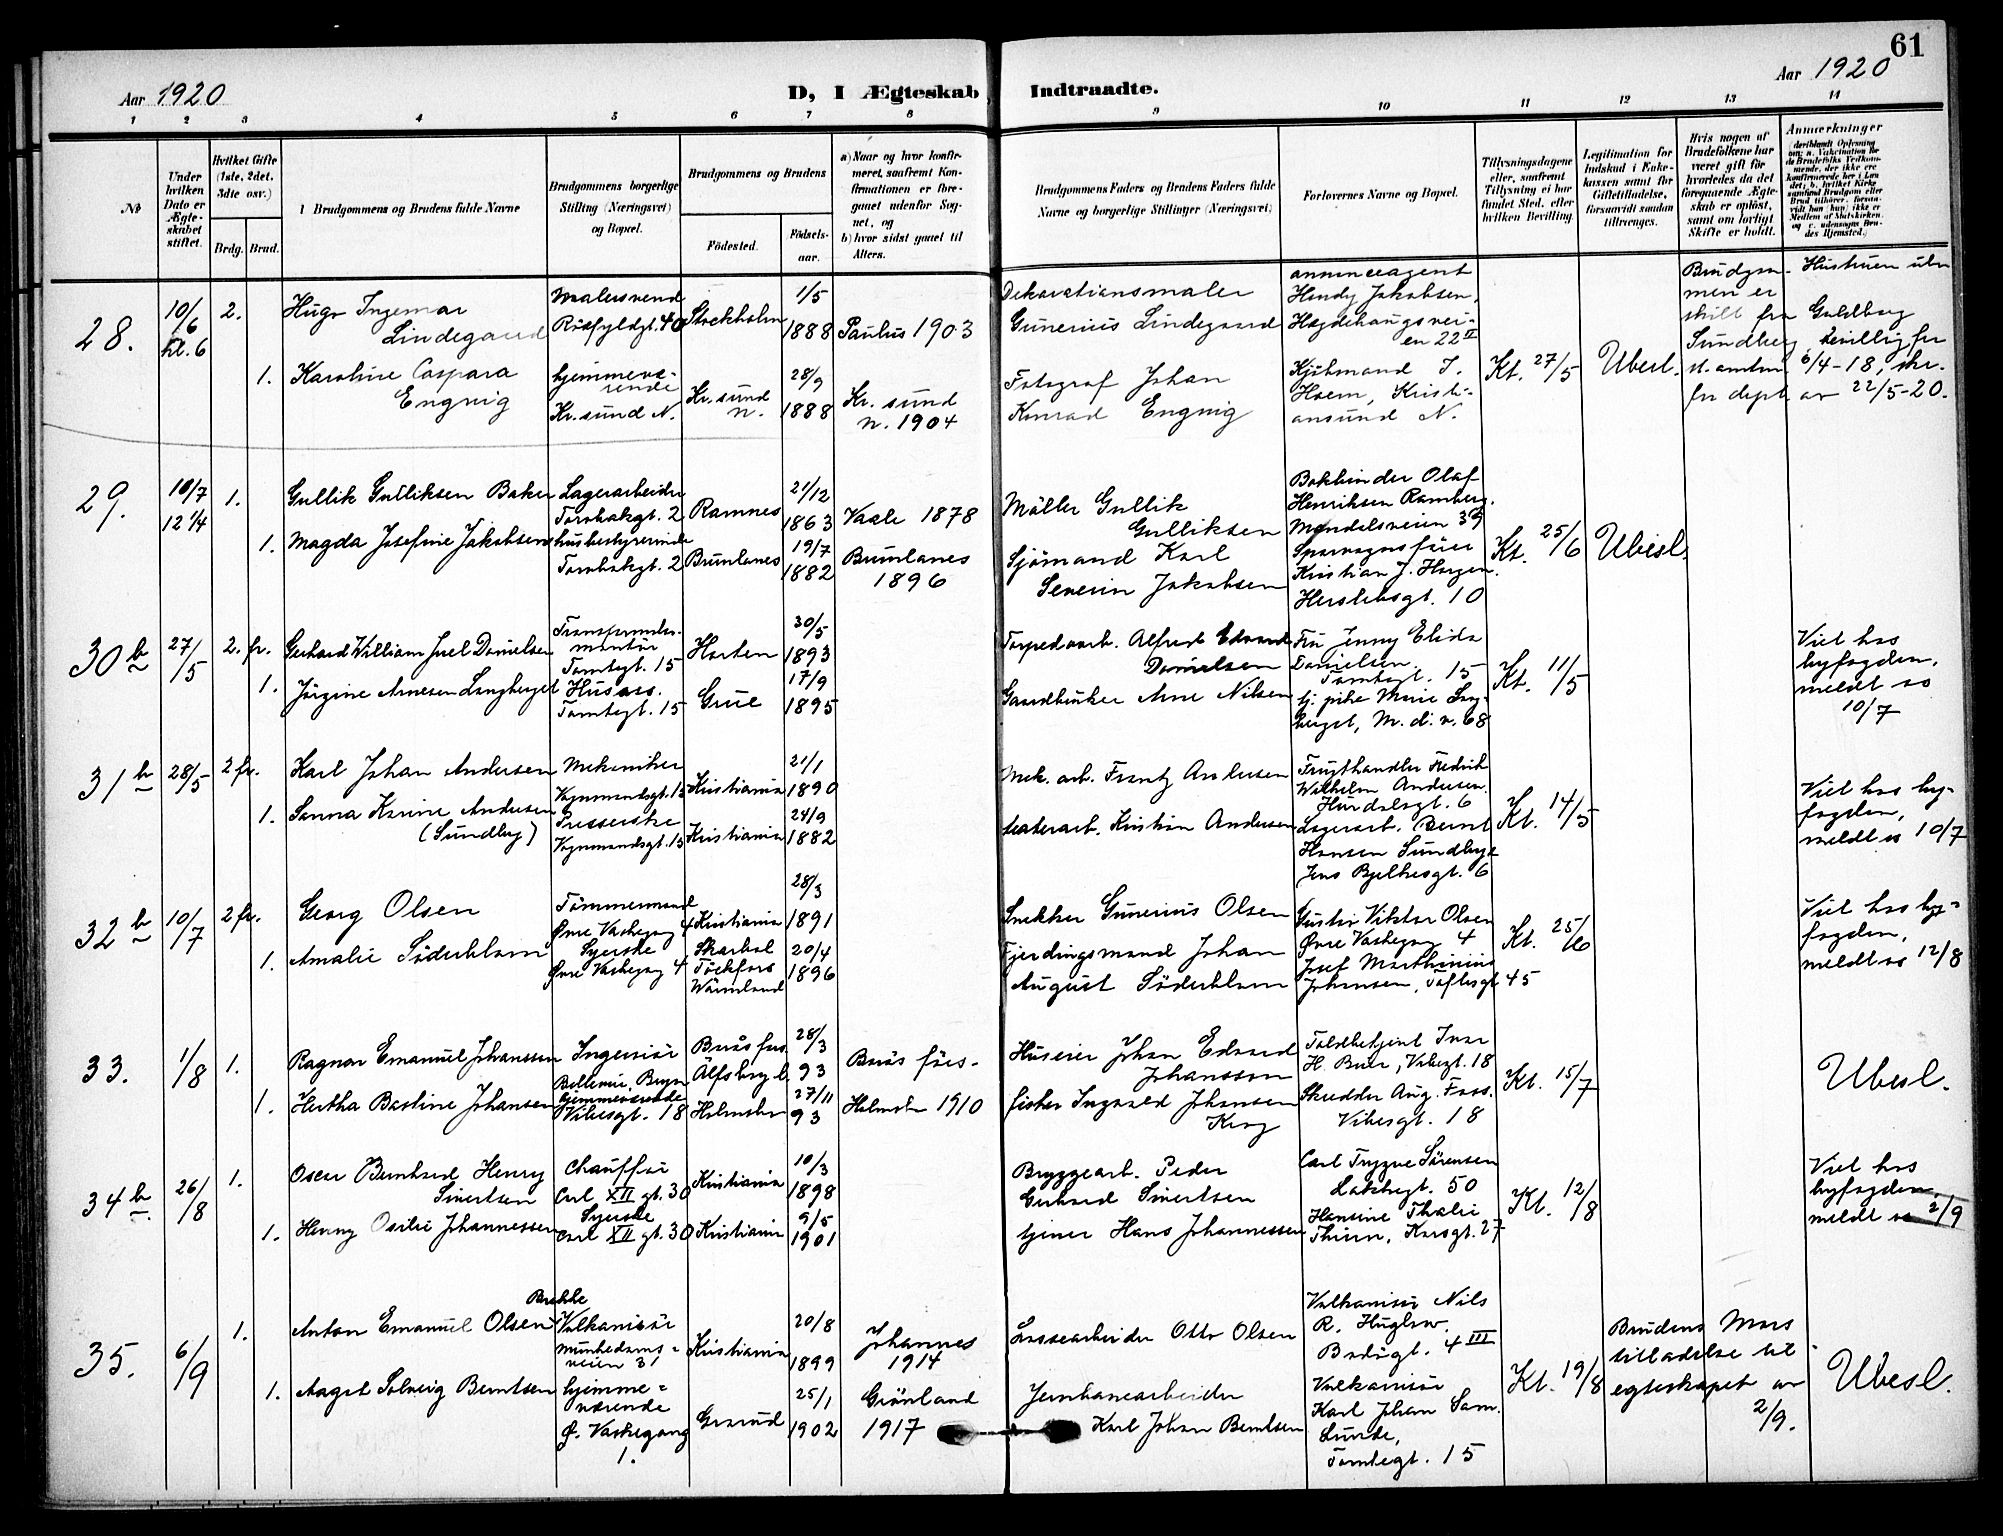 61
Aar 1920
D, I Ægteskab Indtraadte.
Aar 1920
1 2 3 4 5 6 7 8 9 10 11 12 13 14
№
Under hvilken Dato er Ægteskabet stiftet.
Hvilket Gifte (1ste, 2det, 3dte osv.)
Brdg. Brud.
Brudgommens og Brudens fulde Navne
Brudgommens borgerlige Stilling (Næringsvei) og Bopæl.
Brudgommens og Brudens
Födested.
Födselsaar.
a) Naar og hvor konfirmeret, saafremt Konfirmationen er foregaaet udenfor Sognet, og
b) hvor sidst gaaet til Alters.
Brudgommens Faders og Brudens Faders fulde Navne og borgerlige Stillinger (Næringsvei)
Forlovernes Navne og Bopæl.
Tillysningsdagene eller, saafremt Tillysning ei har fundet Sted, efter hvilken Bevilling.
Legitimation for Indskud i Enkekassen samt for Giftetilladelse, forsaavidt saadan tiltrænges.
Hvis nogen af Brudefolkene har været gift før hvorledes da det foregaaende Ægteskab er oplöst, samt om lovligt Skifte er holdt.
Anmærkninger
28.
10/6 kl. 6
2.
Hugo Ingemar
Lindegaard
Malersvend
Risfyldgt. 40
Stockholm
1/5 1888
Paulus 1903
Dekorationsmaler
Gunerius Lindegaard
annonceagent
Hendy Jakobsen,
Hægdehaugsvei-
en 22 II
1.
Karoline Caspara
Engvig
hjemmevæ-
rende
Kr.sund N.
Kr.sund
n.
28/9 1888
Kr. sund
n. 1904
Fotograf Johan
Konrad Engvig
Kjöbmand J.
Hoem, Kristi-
ansund N.
Kt. 27/5
Ubesl.
Brudgom-
men er
skilt fra
Sundberg,
Hustruen
Guldborg
bevilling fra
st. amtm. 6/4-18, skr.
fra dept. av 22/5-20.
29.
10/7 12 1/4
1.
Gullik Gulliksen Baker
Lagerarbeider
Torvbakgt. 2
Ramnes
21/12 1863
Vaale 1878
Möller Gullik
Gulliksen
Bokbinder Olaf
Henriksen Ramberg.
Mandalsveien 39
1.
Magda Josefine Jakobsen
husbestyrerinde
Torvbakgt. 2
Brunlanes
19/7 1882
Brunlanes
1896
Sjömand Karl
Severin Jakobsen
Sporvognsförer
Kristian J. Haagen.
Herslebsgt. 10
Kt. 25/6
Ubesl.
30 b
27/5
2. fr.
Gerhard William Juel Danielsen
Transformator-
montör
Tomtegt. 15
Horten
30/5 1893
Torpedoarb. Alfred Edvard
Danielsen
Fru Jenny Elida
Danielsen.
Tomtegt. 15
1.
Jörgine Arnesen Langberget
Husass.
Tomtegt. 15
Grue
17/9 1895
Gaardbruker Arne Nilsen
tj. pike Marie Lang-
berget, M. d. v. 68
Kt. 11/5
Viet hos
byfogden,
meldt os
10/7
31 b
28/5
2 fr.
Karl Johan Andersen
Mekaniker
Vognmandsgt. 15
Kristiania
21/1 1890
Mek. arb. Frantz Andersen
Frugthandler Fredrik
Wilhelm Andersen.
Hurdalsgt. 6
1.
Sanna Karine Andersen
(Sundby)
Presserske
Vognmandsgt. 15
Kristiania
24/9 1882
teaterarb. Kristian Andersen
Lagerarb. Bernt
Hansen Sundbye
Jens Bjelkesgt. 6
Kt. 14/5
Viet hos by-
fogden,
meldt os 10/7
32 b
10/7
2 fr.
Georg Olsen
Tömmermand
Øvre Vaskegang 4
Kristiania
28/3 1891
Snekker Gunerius Olsen
Gustav Viktor Olsen
Øvre Vaskegang 4
1.
Amalie Söderblom
Syerske
Øvre Vaskegang 4
Skarbol
Töckfors
Wärmland
20/4 1896
Fjerdingsmand Johan
August Söderblom
Josef Marthinius
Johansen, Toftesgt 45
Kt. 25/6
Viet hos by-
fogden,
meldt os 12/8
33.
1/8
1.
Ragnar Emanuel Johanssen
Ingeniör
Bellevue, Bryn
Borås fors.
Älfsborg l.
28/3 93
Borås förs-
Huseier Johan Edvard
Johansson
Toldbetjent Ivar
H. Buer, Vibesgt. 18
1.
Hertha Bastine Johansen
hjemmeværende
Vibesgt. 18
Holmsbu
27/11 93
Holmsbu 1910
fisker Ingvald Johansen
Krog
Skredder Aug. Foss.
Vibesgt. 18
Kt. 15/7
Ubesl.
34 b
26/8
1.
Oscar Bernhard Henry
Sivertsen
Chaufför
Carl XII gt. 30
Kristiania
10/3 1898
Bryggearb. Peder
Gerhard Sivertsen
Carl Trygve Sörensen
Lakkegt. 50
1.
Henny Osilie Johannessen
Syerske
Carl XII gt. 30
Kristiania
9/5 1901
tjener Hans Johannessen
Hansine Thalie
Thurn, Korsgt. 27
Kt. 12/8
Viet hos
byfogden,
meldt os 2/9
35.
6/9
1.
Brekke
Anton Emanuel Olsen
Vulkanisör
Munkedams-
veien 31
Kristiania
20/8 1899
Johannes
1914
Lossearbeider Otto Olsen
Vulkanisör Nils
R. Huglow,
Bodögt. 4 III
1.
Aagot Solveig Berntsen
hjemme-
værende
Ø. Vaskegang
1.
Grorud
25/1 1902
Grönland
1917
Jernbanearbeider
Karl Johan Berntsen
Vulkanisör
Karl Johan Sam.
Lunde,
Tomtegt. 15
Kt. 19/8
Brudens Mors
tilladelse til
egteskapet av
2/9.
Ubesl.